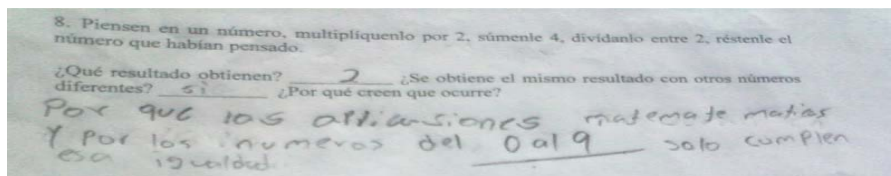 8. Piensen en un número, multiplíquenlo por 2, súmenle 4, divídanlo entre 2, réstenle el
número que habían pensado.
¿Qué resultado obtienen? 2 ¿Se obtiene el mismo resultado con otros números
diferentes? si ¿Por qué creen que ocurre?
Por que las matematematias
Y por los numeros del 0 al 9 solo cumplen
esa igualdad